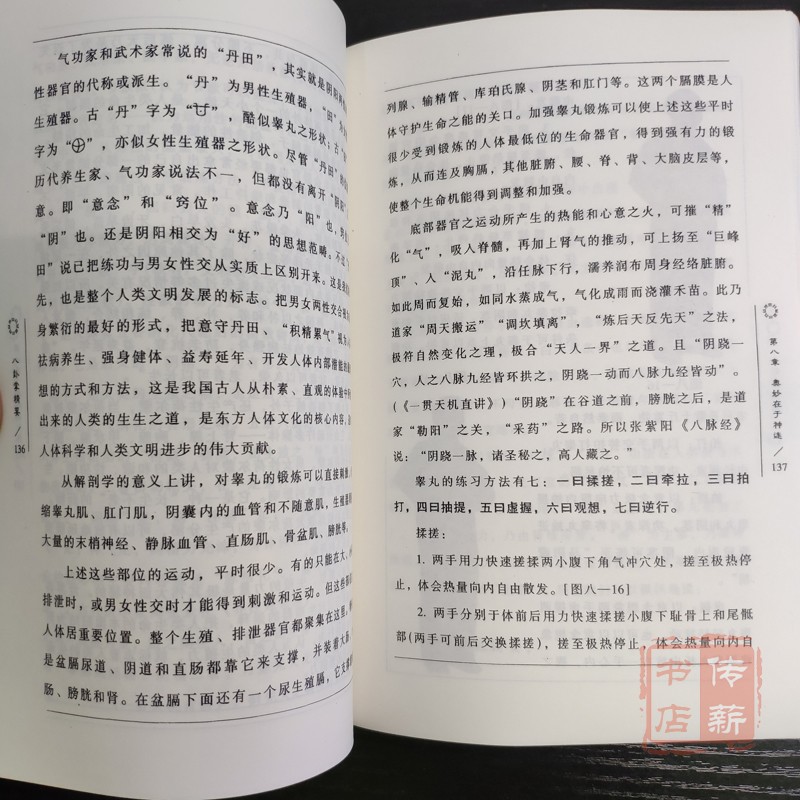 气功家和武术家常说的“丹田”，其实就是阴阳两
性器官的代称或派生。“丹”为男性生殖器，“田”为
生殖器。古“丹”字为“”，酷似睾丸之形状；古“
字为“⊕”，亦似女性生殖器之形状。尽管“丹田”
历代养生家、气功家说法不一，但都没有离开“阴阳”
意。即“意念”和“窍位”。意念乃“阳”也，
“阴”也。还是阴阳相交为“好”的思想范畴。不过“
田”说已把练功与男女性交从实质上区别开来。这是
先，也是整个人类文明发展的标志。把男女两性交合
身繁衍的最好的形式，把意守丹田、“积精累气”
祛病养生、强身健体、益寿延年、开发人体内部潜能的
想的方式和方法，这是我国古人从朴素、直观的体验中
出来的人类的生生之道，是东方人体文化的核心内容，
人体科学和人类文明进步的伟大贡献。
从解剖学的意义上讲，对睾丸的锻炼可以直接刺激
缩睾丸肌、肛门肌，阴囊内的血管和不随意肌，生殖
大量的末梢神经、静脉血管、直肠肌、骨盆肌、膀胱等。
上述这些部位的运动，平时很少。有的只能在大、
排泄时，或男女性交时才能得到刺激和运动。但这些
人体居重要位置。整个生殖、排泄器官都聚集在这里，
是盆膈尿道、阴道和直肠都靠它来支撑，并装着大肠
肠、膀胱和肾。在盆膈下面还有一个尿生殖膈，它支
八卦掌精萃
136
列腺、输精管、库珀氏腺、阴茎和肛门等。这两个膈膜是人
体守护生命之能的关口。加强睾丸锻炼可以使上述这些平时
很少受到锻炼的人体最低位的生命器官，得到强有力的锻
炼，从而连及胸膈，其他脏腑、腰、脊、背、大脑皮层等，
使整个生命机能得到调整和加强。
底部器官之运动所产生的热能和心意之火，可摧“精”
化“气”，吸人脊髓，再加上肾气的推动，可上扬至“巨峰
顶”、人“泥丸”，沿任脉下行，濡养润布周身经络脏腑。
如此周而复始，如同水蒸成气，气化成雨而浇灌禾苗。此乃
道家“周天搬运”“调坎填离”，“炼后天反先天”之法，
极符自然变化之理，极合“天人一界”之道。且“阴跷一
穴，人之八脉九经皆环拱之，阴跷一动而八脉九经皆动”。
(《一贯天机直讲》)“阴跷”在谷道之前，膀胱之后，是道
家“勒阳”之关，“采药”之路。所以张紫阳《八脉经》
说：“阴跷一脉，诸圣秘之，高人藏之。”
睾丸的练习方法有七：一曰揉搓，二曰牵拉，三曰拍
打，四曰抽提，五曰虚握，六曰观想，七曰逆行。
揉搓：
1. 两手用力快速搓揉两小腹下角气冲穴处，搓至极热停
止，体会热量向内自由散发。[图八—16]
2. 两手分别于体前后用力快速搓揉小腹下耻骨上和尾骶
部(两手可前后交换揉搓)，搓至极热停止，体会热量向内自
第八章 奥妙在于神逸
137
传薪
书店